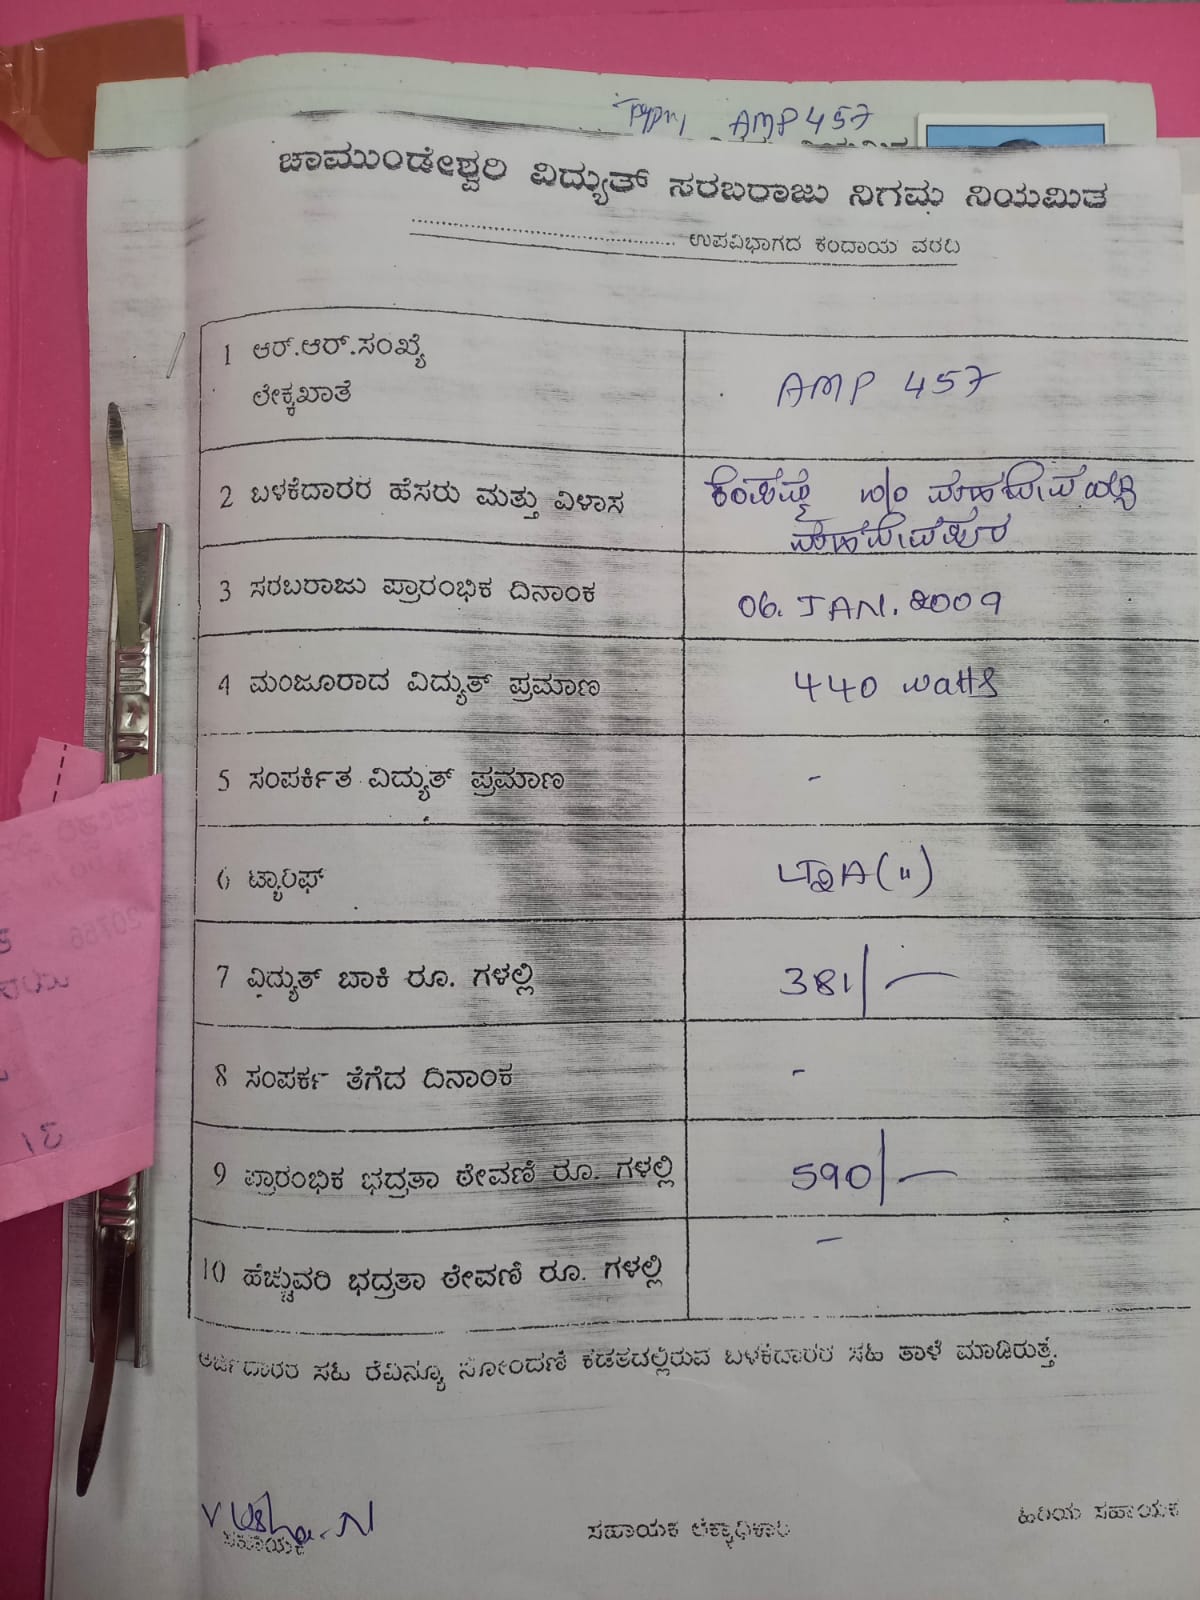 AMP 457
ಚಾಮುಂಡೇಶ್ವರಿ ವಿದ್ಯುತ್ ಸರಬರಾಜು ನಿಗಮ ನಿಯಮಿತ
........................................ ಉಪವಿಭಾಗದ ಕಂದಾಯ ವರದಿ
1 ಆರ್.ಆರ್.ಸಂಖ್ಯೆ
ಲೆಕ್ಕಖಾತೆ
AMP 457
2 ಬಳಕೆದಾರರ ಹೆಸರು ಮತ್ತು ವಿಳಾಸ
ಕೆಂಪಮ್ಮ w/o
3 ಸರಬರಾಜು ಪ್ರಾರಂಭಿಕ ದಿನಾಂಕ
06. JAN. 2009
4 ಮಂಜೂರಾದ ವಿದ್ಯುತ್ ಪ್ರಮಾಣ
440 watts
5 ಸಂಪರ್ಕಿತ ವಿದ್ಯುತ್ ಪ್ರಮಾಣ
-
6 ಟ್ಯಾರಿಫ್
LT2A(ii)
7 ವಿದ್ಯುತ್ ಬಾಕಿ ರೂ. ಗಳಲ್ಲಿ
381/-
8 ಸಂಪರ್ಕ ತೆಗೆದ ದಿನಾಂಕ
-
9 ಪ್ರಾರಂಭಿಕ ಭದ್ರತಾ ಠೇವಣಿ ರೂ. ಗಳಲ್ಲಿ
590/-
10 ಹೆಚ್ಚುವರಿ ಭದ್ರತಾ ಠೇವಣಿ ರೂ. ಗಳಲ್ಲಿ
-
ಅರ್ಜಿದಾರರ ಸಹಿ ರೆವಿನ್ಯೂ ನೋಂದಣಿ ಕಡತದಲ್ಲಿರುವ ಬಳಕೆದಾರರ ಸಹಿ ತಾಳೆ ಮಾಡಿರುತ್ತೆ.
ಸಹಾಯಕ
ಸಹಾಯಕ ಲೆಕ್ಕಾಧಿಕಾರಿ
ಹಿರಿಯ ಸಹಾಯಕ